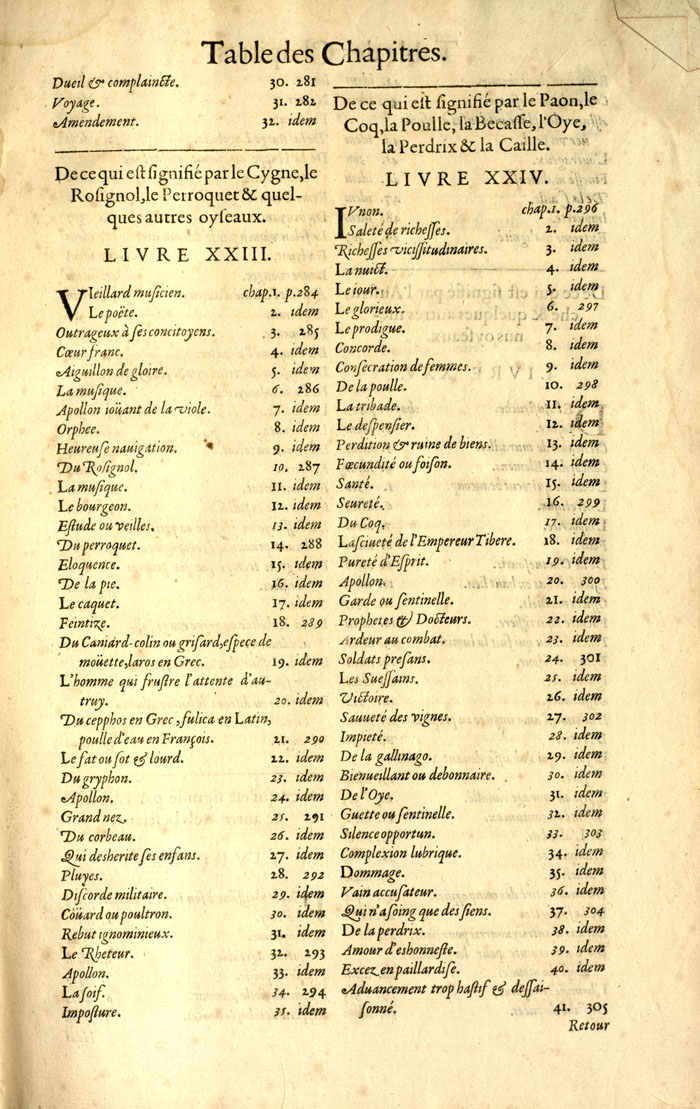 Table des Chapitres.
Dueil & complaincte. 30. 281
Voyage. 31. 282
Amendement. 32. idem
De ce qui est signifié par le Cygne, le
Rosignol, le Perroquet & quel-
ques autres oyseaux.
LIVRE XXIII.
VIeillard musicien. chap.1. p.284
Le poëte. 2. idem
Outrageux à ses concitoyens. 3. 285
Cœur franc. 4. idem
Aiguillon de gloire. 5. idem
La musique. 6. 286
Apollon ioüant de la viole. 7. idem
Orphee. 8. idem
Heureuse nauigation. 9. idem
Du Rosignol. 10. 287
La musique. 11. idem
Le bourgeon. 12. idem
Estude ou veilles. 13. idem
Du perroquet. 14. 288
Eloquence. 15. idem
De la pie. 16. idem
Le caquet. 17. idem
Feintize. 18. 289
Du Caniard-colin ou grisard, espece de
moüette, laros en Grec. 19. idem
L'homme qui frustre l'attente d'au-
truy. 20. idem
Du cepphos en Grec, fulica en Latin,
poulle d'eau en François. 21. 290
Le fat ou sot & lourd. 22. idem
Du gryphon. 23. idem
Apollon. 24. idem
Grand nez. 25. 291
Du corbeau. 26. idem
Qui desherite ses enfans. 27. idem
Pluyes. 28. 292
Discorde militaire. 29. idem
Coüard ou poultron. 30. idem
Rebut ignominieux. 31. idem
Le Rheteur. 32. 293
Apollon. 33. idem
La soif. 34. 294
Imposture. 35. idem
De ce qui est signifié par le Paon, le
Coq, la Poulle, la Becasse, l'Oye,
la Perdrix & la Caille.
LIVRE XXIV.
IVnon. chap.1. p.296
Saleté de richesses. 2. idem
Richesses vicissitudinaires. 3. idem
La nuict. 4. idem
Le iour. 5. idem
Le glorieux. 6. 297
Le prodigue. 7. idem
Concorde. 8. idem
Consecration de femmes. 9. idem
De la poulle. 10. 298
La tribade. 11. idem
Le despensier. 12. idem
Perdition & ruine de biens. 13. idem
Fœcundité ou foison. 14. idem
Santé. 15. idem
Seureté. 16. 299
Du Coq. 17. idem
Lasciueté de l'Empereur Tibere. 18. idem
Pureté d'Esprit. 19. idem
Apollon. 20. 300
Garde ou sentinelle. 21. idem
Prophetes & Docteurs. 22. idem
Ardeur au combat. 23. idem
Soldats presans. 24. 301
Les Suessains. 25. idem
Victoire. 26. idem
Sauueté des vignes. 27. 302
Impieté. 28. idem
De la gallinago. 29. idem
Bienueillant ou debonnaire. 30. idem
De l'Oye. 31. idem
Guette ou sentinelle. 32. idem
Silence opportun. 33. 303
Complexion lubrique. 34. idem
Dommage. 35. idem
Vain accusateur. 36. idem
Qui n'a soing que des siens. 37. 304
De la perdrix. 38. idem
Amour d'eshonneste. 39. idem
Excez en paillardise. 40. idem
Aduancement trop hastif & dessai-
sonné. 41. 305
Retour